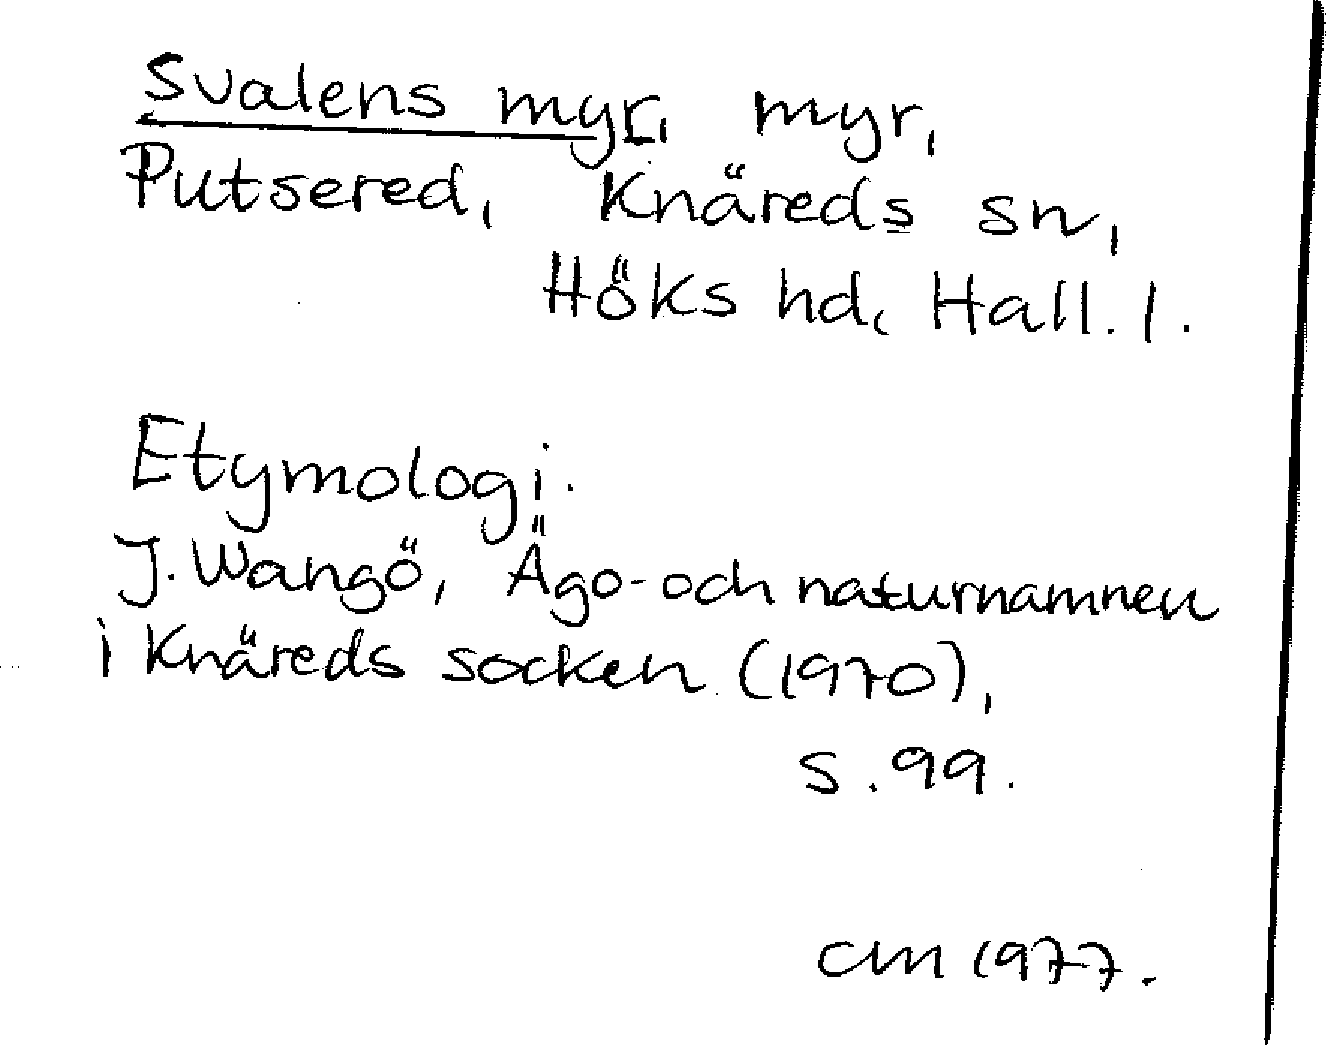 Svalens myr, myr,
Putsered, Knäreds sn,
Höks hd, Hall. l.
Etymologi.
J. Wangö, Ägo- och naturnamnen
i Knäreds socken (1970),
s. 99.
CM 1977.